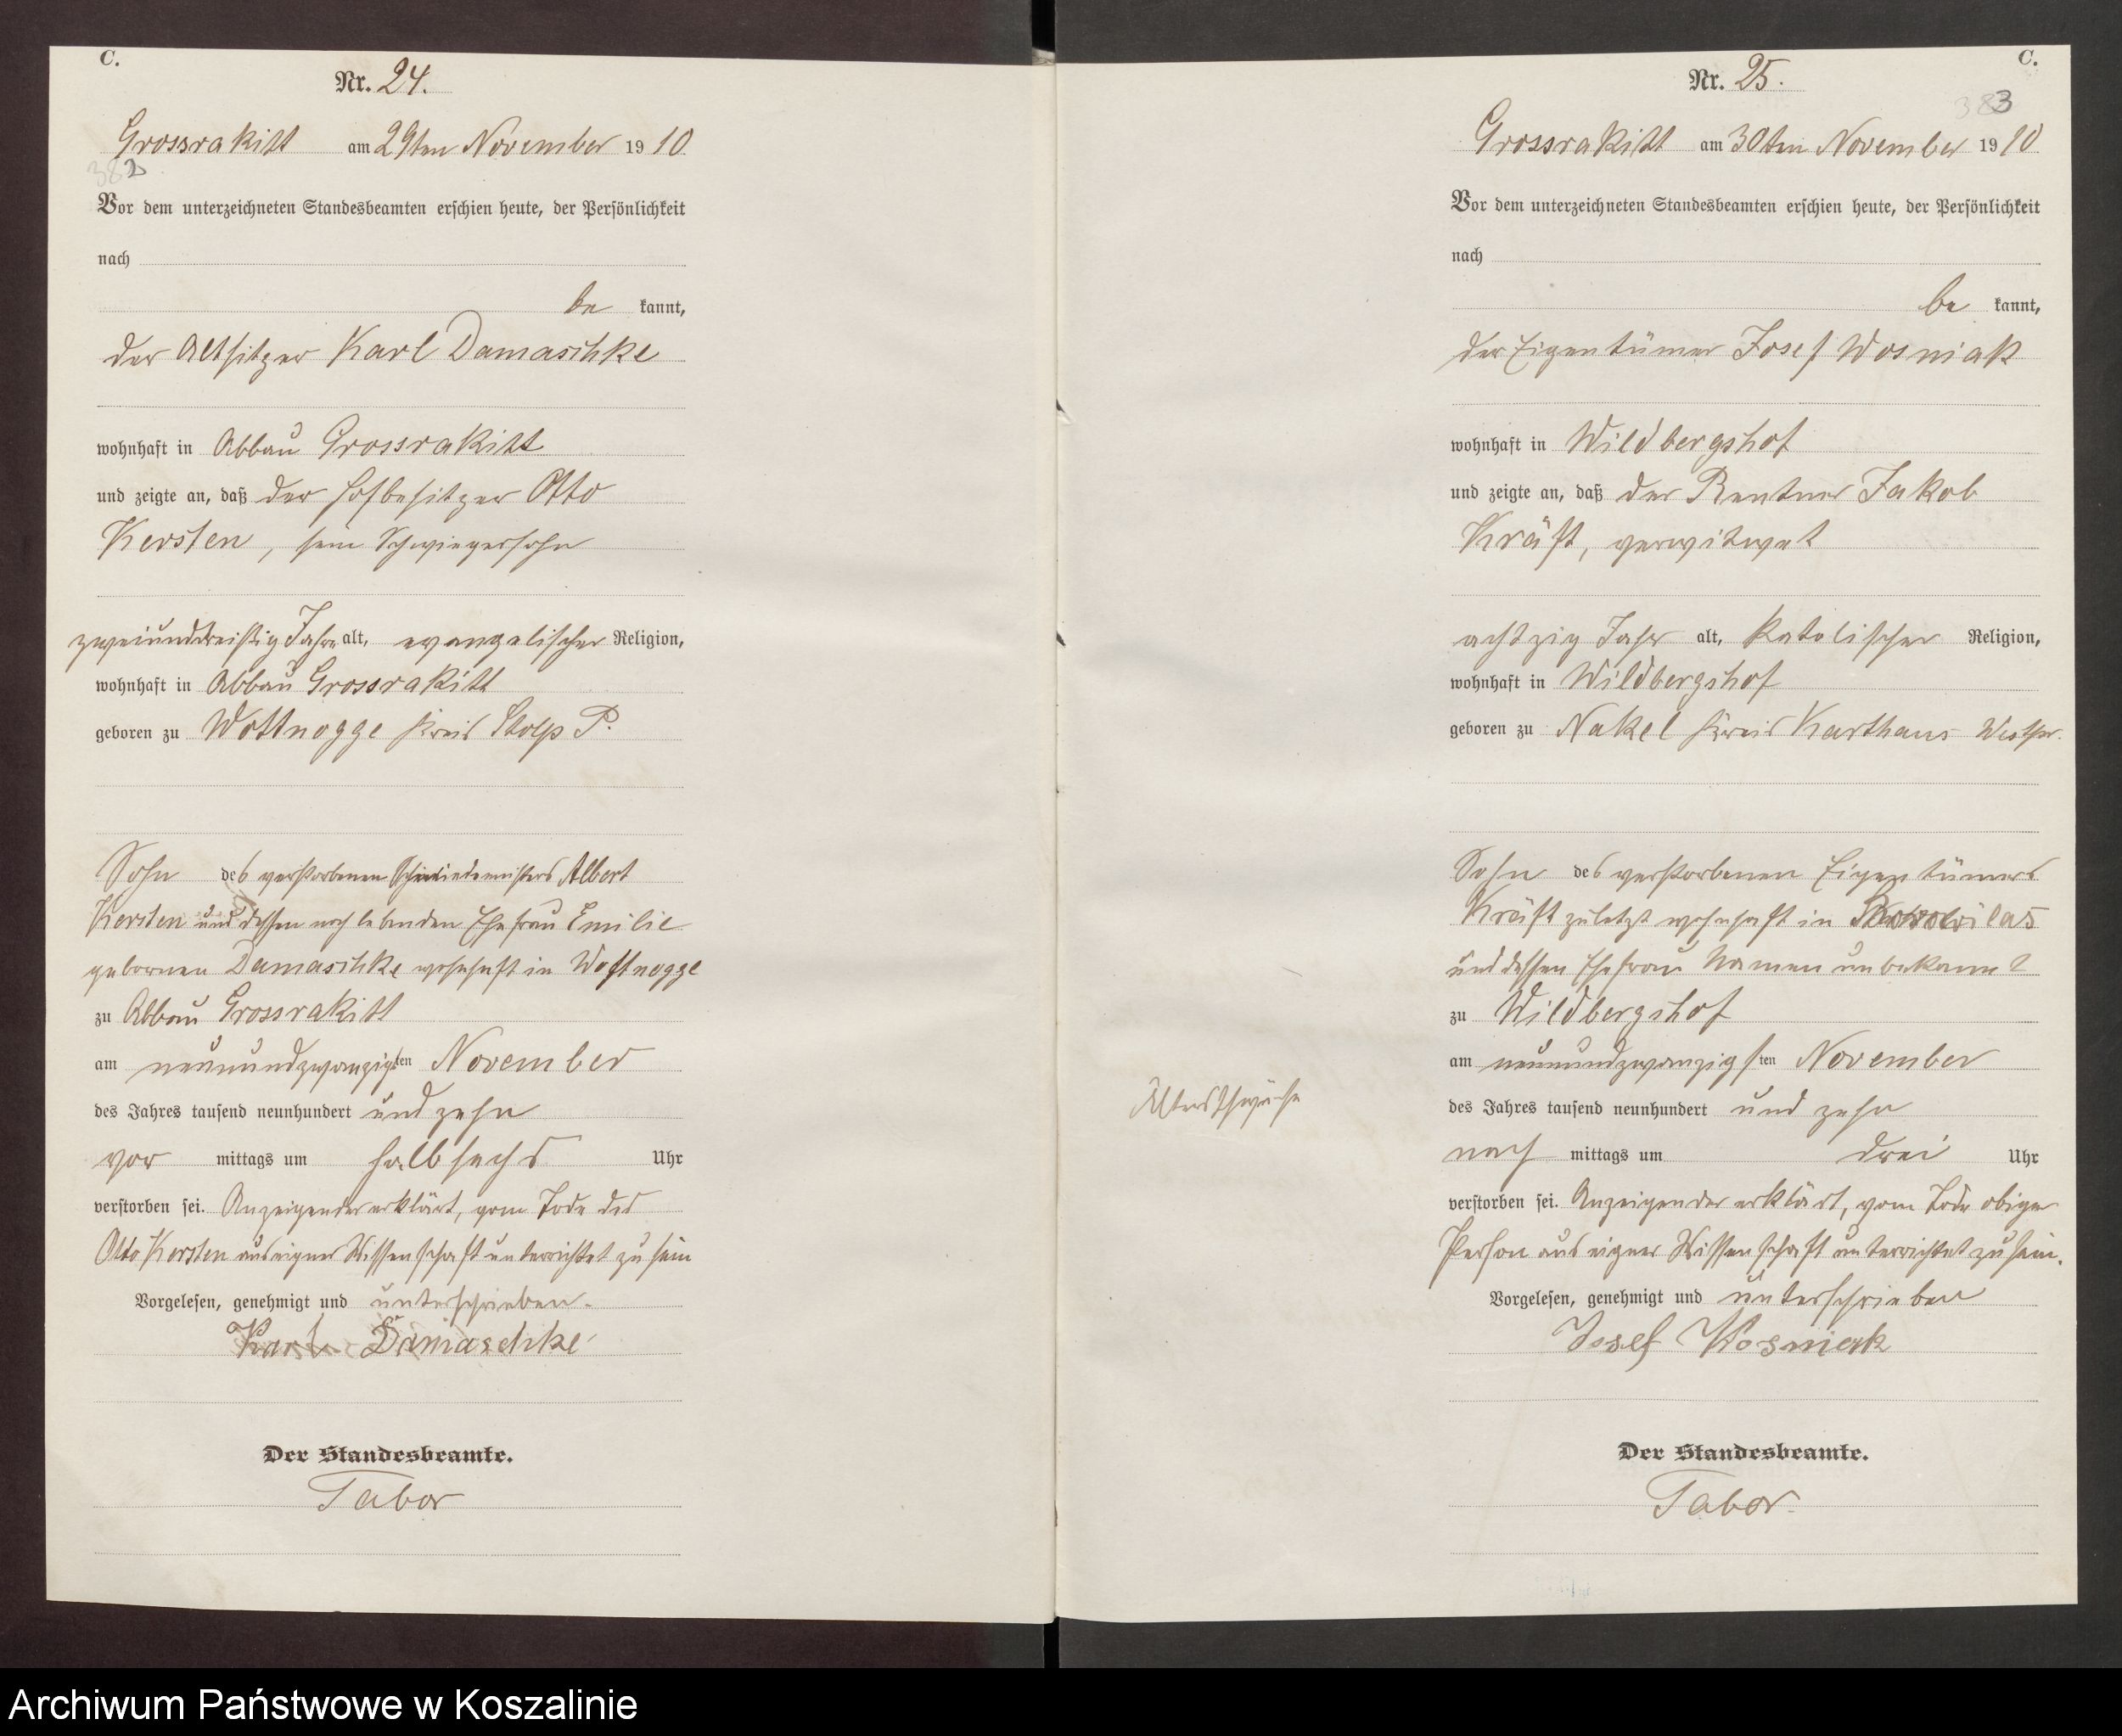 C.
Nr. 24.
Grossrakitt am 29ten November 1910
382
Vor dem unterzeichneten Standesbeamten erschien heute, der Persönlichkeit
nach
be kannt,
der Altsitzer Karl Damaschke
wohnhaft in Abbau Grossrakitt
und zeigte an, daß der Hofbesitzer Otto
Kersten, sein Schwiegersohn
zweiunddreißig Jahre alt, evangelischer Religion,
wohnhaft in Abbau Grossrakitt
geboren zu Wottnogge Kreis Stolp P.
Sohn des verstorbenen Schmiedemeisters Albert
Kersten und dessen noch lebenden Ehefrau Emilie
gebornen Damaschke wohnhaft in Wottnogge
zu Abbau Grossrakitt
am neunundzwanzigsten November
des Jahres tausend neunhundert und zehn
vor mittags um halb sechs Uhr
verstorben sei. Anzeigender erklärt, vom Tode des
Otto Kersten aus eigner Wissenschaft unterrichtet zu sein
Vorgelesen, genehmigt und unterschrieben.
Karl Damaschke
Der Standesbeamte.
Tabor
C.
Nr. 25.
383
Grossrakitt am 30ten November 1910
Vor dem unterzeichneten Standesbeamten erschien heute, der Persönlichkeit
nach
be kannt,
der Eigentümer Josef Wosniak
wohnhaft in Wildbergshof
und zeigte an, daß der Rentner Jakob
Kräft, verwitwet
achtzig Jahr alt, katolischer Religion,
wohnhaft in Wildbergshof
geboren zu Nakel Kreis Karthaus Westpr.
Sohn des verstorbenen Eigentümers
Kräft zuletzt wohnhaft in
und dessen Ehefrau Namen unbekannt
zu Wildbergshof
am neunundzwanzigsten November
des Jahres tausend neunhundert und zehn
nach mittags um drei Uhr
verstorben sei. Anzeigender erklärt, vom Tode obiger
Person aus eigner Wissenschaft unterrichtet zu sein.
Vorgelesen, genehmigt und unterschrieben
Josef Wosniak
Der Standesbeamte.
Tabor.
Altersschwäche
Archiwum Państwowe w Koszalinie